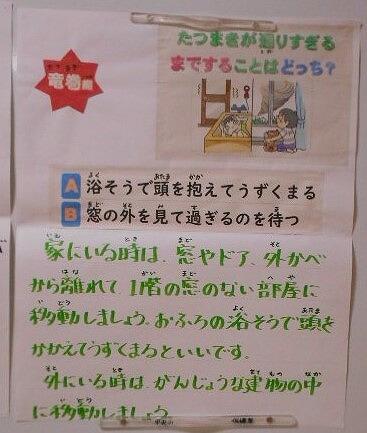 竜巻編
たつまきが通りすぎる
まですることはどっち?
A 浴そうで頭を抱えてうずくまる
B 窓の外を見て過ぎるのを待つ
家にいる時は、窓やドア、外かべ
から離れて、1階の窓のない部屋に
移動しましょう。おふろの浴そうで頭を
かかえてうずくまるといいです。
外にいる時は、がんじょうな建物の中
に移動しましょう。